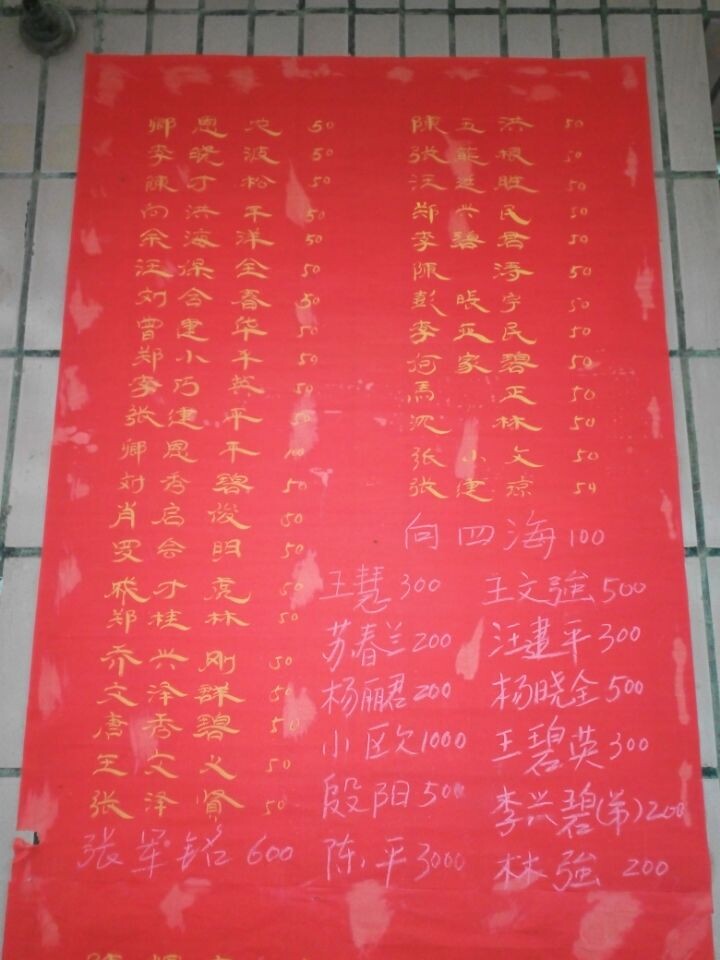 卿恩忠 50
李晓波 50
陳才松 50
向洪平 50
余海洋 50
汪保全 50
刘含春 50
曾建华 50
郑小平 50
李巧英 50
张建平 50
卿恩平 100
刘秀碧 50
肖启俊 50
罗会明 50
张才虎 50
郑桂林 50
乔兴刚 50
文泽群 50
唐秀碧 50
王文义 50
张泽贤 50
张军铭 600
陳五洪 50
张菲根 50
汪廷胜 50
郑兴民 50
李碧君 50
陳涛 50
彭晓宇 50
李正民 50
何家碧 50
馬正 50
沈林 50
张小文 50
张建琼 54
向四海 100
王慧 300
苏春兰 200
杨丽君 200
小欧 1000
殷阳 500
陈平 3000
王文強 500
汪建平 300
杨晓全 500
王碧英 300
李兴碧(弟) 200
林強 200